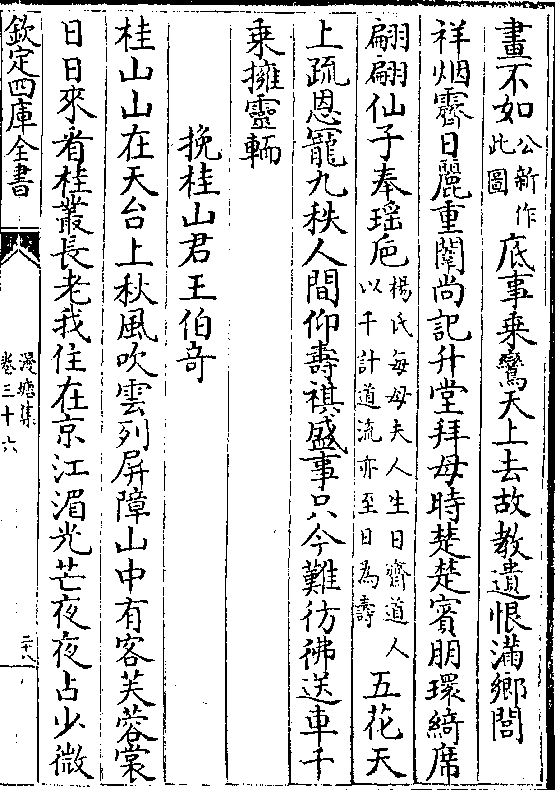 畫不如公新作此圖底事乗鸞天上去故教遺恨滿鄉閭
祥烟霽日麗重闈尚記升堂拜母時楚楚賓朋環綺席
翩翩仙子奉瑶巵楊氏每母夫人生日齋道人以千計道流亦至日為壽五花天
上疏恩寵九秩人間仰壽祺盛事只今難彷彿送車千
乗擁靈輀
挽桂山君王伯竒
桂山山在天台上秋風吹雲列屏障山中有客芙蓉裳
日日來看桂叢長老我住在京江湄光芒夜夜占少微
欽定四庫全書
漫塘集
卷三十六
二十八